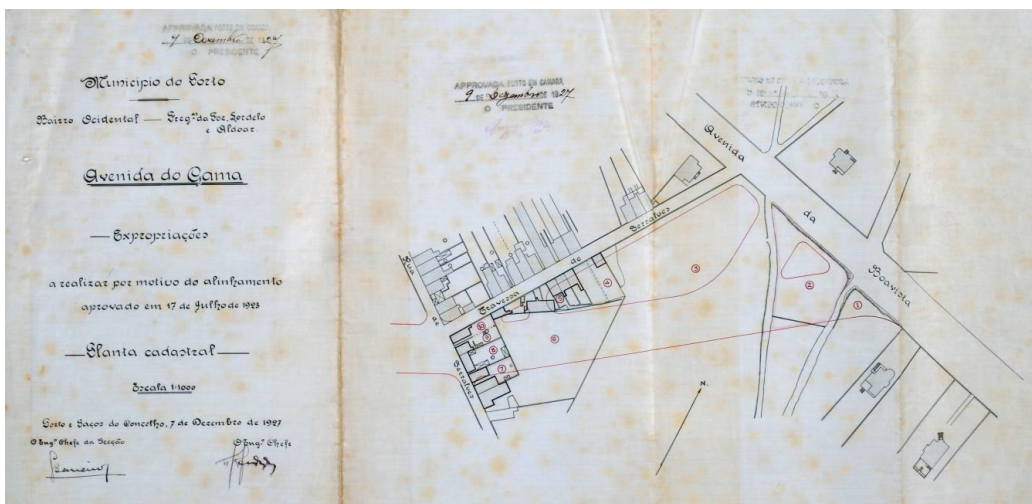 APPROVADA PORTO EM CAMARA,
7 DE Dezembro DE 1927
O PRESIDENTE
Municipio do Porto
Bairro Ocidental — Freg.as da Foz, Lordelo
e Aldoar.
Avenida do Gama
— Expropriações
a realizar por motivo do alinhamento
aprovado em 17 de Julho de 1923
— Planta cadastral —
Escala 1:1000
Porto e Paços do Concelho, 7 de Dezembro de 1927
O Engº Chefe da Secção
O Engº Chefe
APPROVADA, PORTO EM CAMARA,
9 DE Dezembro DE 1927
O PRESIDENTE
Avenida
da
Boavista
Travessa
de
Serralves
Rua
de
Serralves
1
2
3
4
5
6
7
8
9
10
N.